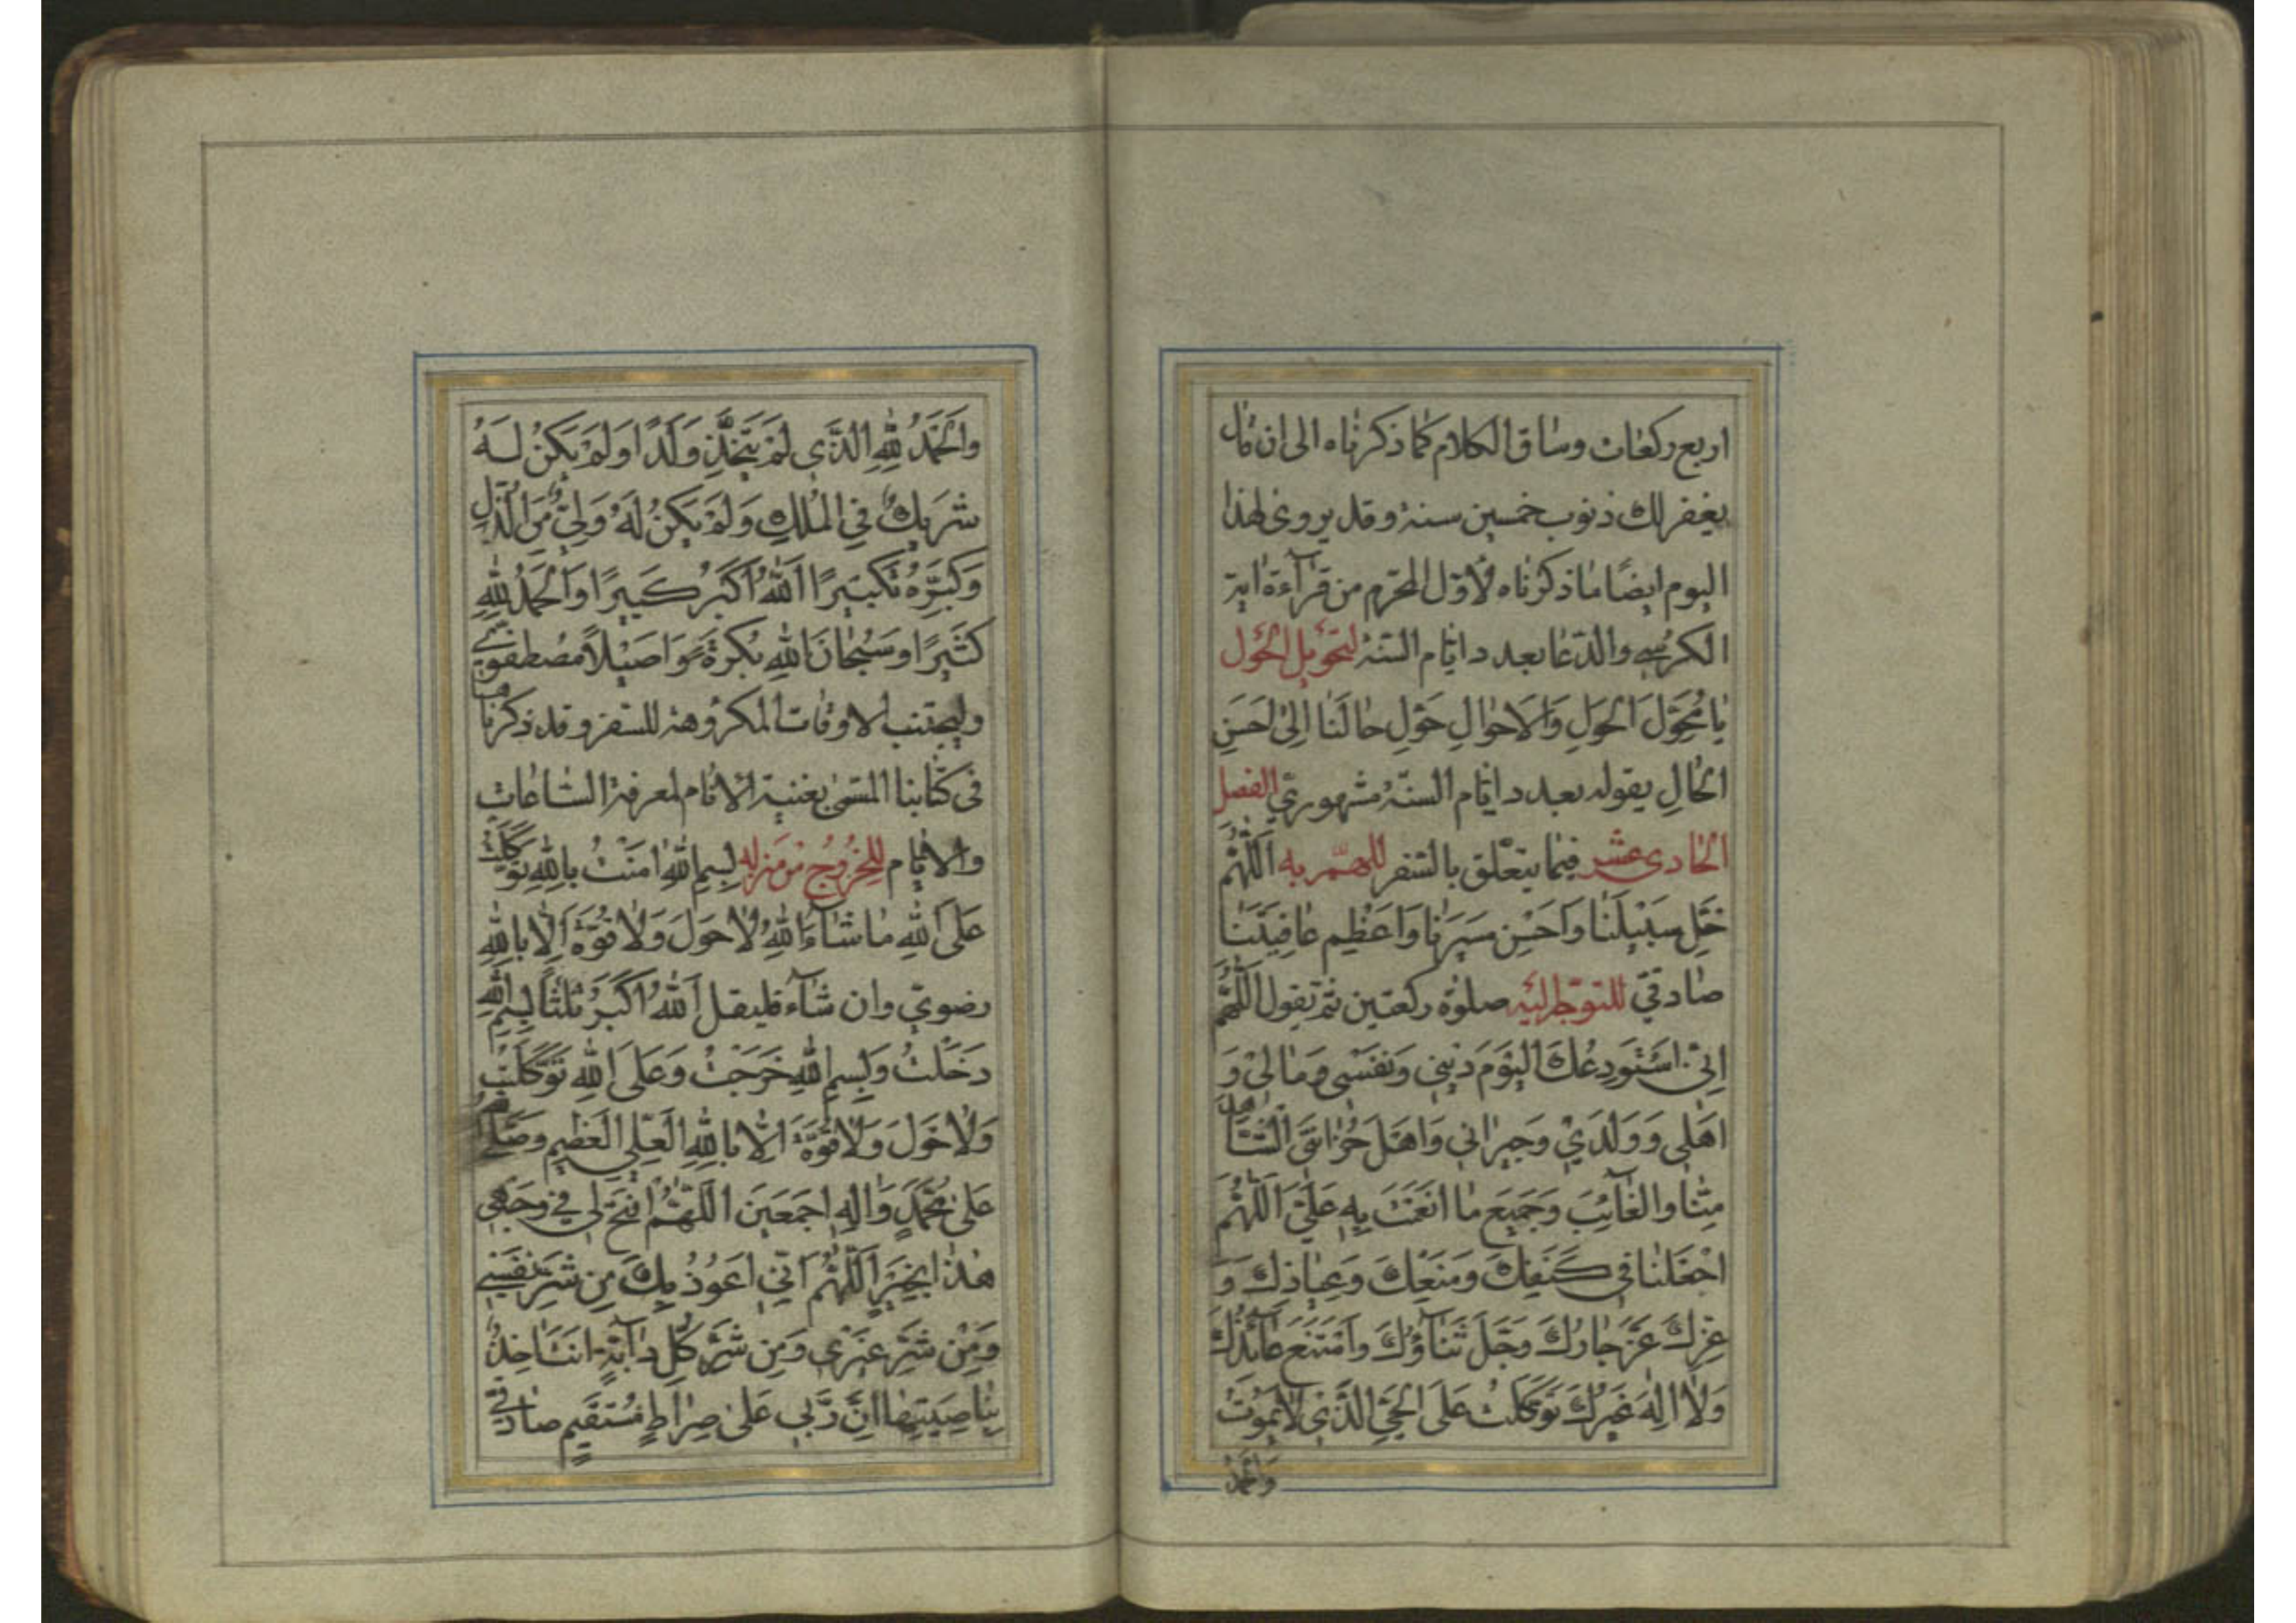 اربع ركعات وساق الكلام كما ذكرناه الى ان قال
يغفر لك ذنوب خمسين سنة وقد يروى لهذا
اليوم ايضًا ما ذكرناه لأوّل المحرّم من قرآءة اية
الكرسي والدّعا بعدد ايّام السّنة لتحويل الحَول
يٰا مُحَوِّلَ الحَولِ وَالاَحوٰالِ حَوِّل حٰالَنٰا اِلىٰ اَحسَنِ
الحٰالِ يقوله بعدد ايّام السنّة مشهوريّ الفصل
الحادى عشر فيما يتعلّق بالسّفر للهمّ به اَللّٰهُمَّ
خَلِّ سَبيلَنٰا وَاَحسِن سَيرَنٰا وَاَعظِم عٰافِيَتَنٰا
صادقيّ للتوجّه اليه صلوٰة ركعتين ثمّ تقول اَللّٰهُمَّ
اِنّى اَستَودِعُكَ اليَومَ دينى وَنَفسى وَمٰالى وَ
اَهلى وَوَلَدي وَجيرٰانى وَاَهلَ حُزٰانَتَى الشّٰاهِدَ
مِنّٰا وَالغٰآئِبَ وَجَميعَ مٰا اَنعَمتَ بِه عَلَىَّ اَللّٰهُمَّ
اجعَلنٰا فى كَنَفِكَ وَمَنعِكَ وَعِيٰاذِكَ وَ
عِزِّكَ عَزَّ جٰارُكَ وَجَلَّ ثَنٰآؤُكَ وَامتَنَعَ عٰائِذُكَ
وَلٰا اِلٰهَ غَيرُكَ تَوَكَّلتُ عَلَى الحَىِّ الَّذى لٰا يَمُوتُ
وَالحَمدُ
وَالحَمدُ لِلّٰهِ الَّذي لَم يَتَّخِذ وَلَدًا وَلَم يَكُن لَهُ
شَريكٌ فِي المُلكِ وَلَم يَكُن لَهُ وَلِيٌّ مِنَ الذُّلِّ
وَكَبِّرهُ تَكبيرًا اَللّٰهُ اَكبَرُ كَبيرًا وَالحَمدُ لِلّٰهِ
كَثيرًا وَسُبحٰانَ اللّٰهِ بُكرَةً وَاَصيلًا مصطفويّ
وليجتنب الاوقات المكروهة للسّفر وقد ذكرناها
فى كتابنا المسمّى بغنية الانام لمعرفة السّاعات
والايّام للخُرُوج من مَنزله بِسمِ اللّٰهِ اٰمَنتُ بِاللّٰهِ تَوَكَّلتُ
عَلَى اللّٰهِ مٰا شٰآءَ اللّٰهُ لٰا حَولَ وَلٰا قُوَّةَ اِلّٰا بِاللّٰهِ
رضويّ وان شآء فليقل اَللّٰهُ اَكبَرُ ثلثاً بِسمِ اللّٰهِ
دَخَلتُ وَبِسمِ اللّٰهِ خَرَجتُ وَعَلَى اللّٰهِ تَوَكَّلتُ
وَلٰا حَولَ وَلٰا قُوَّةَ اِلّٰا بِاللّٰهِ العَلِيِّ العَظيمِ وَصَلَّى اللّٰهُ
عَلىٰ مُحَمَّدٍ وَاٰلِهِ اَجمَعينَ اَللّٰهُمَّ افتَح لى فى وَجهى
هٰذٰا بِخَيرٍ اَللّٰهُمَّ اِنّى اَعُوذُ بِكَ مِن شَرِّ نَفسي
وَمِن شَرِّ غَيرى وَمِن شَرِّ كُلِّ دٰآبَّةٍ اَنتَ اٰخِذٌ
بِنٰاصِيَتِهٰا اِنَّ رَبّى عَلىٰ صِرٰاطٍ مُستَقيمٍ صادقيّ